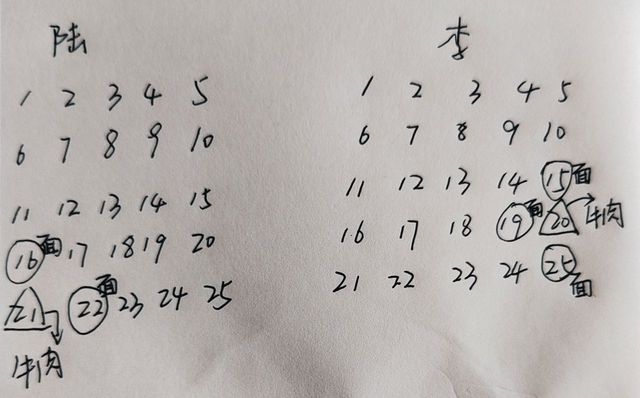 陆 李
1 2 3 4 5 1 2 3 4 5
6 7 8 9 10 6 7 8 9 10
11 12 13 14 15 11 12 13 14 15面
16面 17 18 19 20 16 17 18 19面 20 牛肉
21 22面 23 24 25 21 22 23 24 25面
牛肉